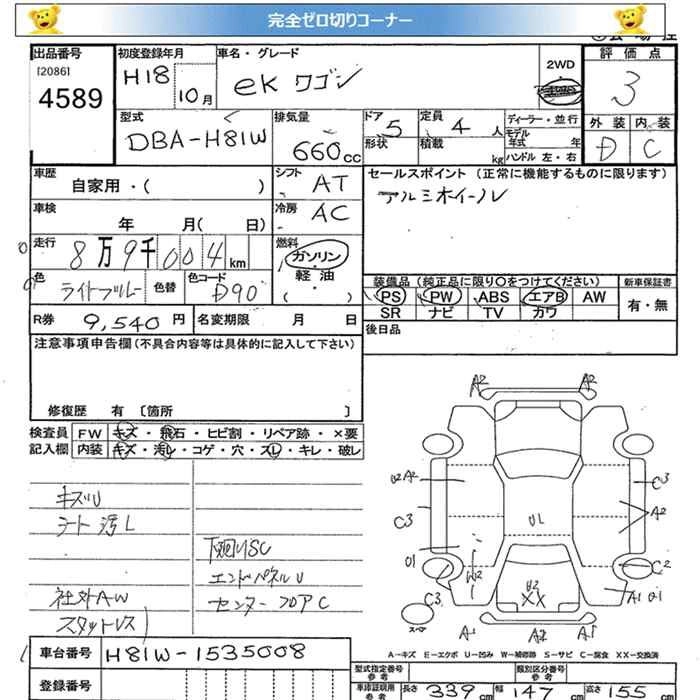 完全ゼロ切りコーナー
出品番号
[2086]
4589
初度登録年月
H18 10月
車名・グレード
eK ワゴン
2WD
評価点
3
型式
DBA-H81W
排気量
660cc
ドア
5
形状
定員
4人
積載
kg
ディーラー・並行
モデル
年式 年
ハンドル 左・右
外装
D
内装
C
車歴
自家用・( )
シフト
AT
セールスポイント(正常に機能するものに限ります)
アルミホイール
車検
年 月( 日)
冷房
AC
走行
8万9千004km
燃料
ガソリン
軽油
( )
色
ライトブルー
色替
色コード
D90
装備品(純正品に限り○をつけてください)
PS PW ABS エアB AW
SR ナビ TV カワ
新車保証書
有・無
R券
9,540円
名変期限 月 日
後日品
注意事項申告欄(不具合内容等は具体的に記入して下さい)
修復歴 有 [箇所 ]
検査員
記入欄
FW キズ・飛石・ヒビ割・リペア跡・×要
内装 キズ・汚レ・コゲ・穴・スレ・キレ・破レ
キズU
シート汚レ
下廻リSC
エンドパネルU
センターフロアC
社外AW
スタットレス
A2 A2
U2 A2
C3
C3
A2
U1
U1
W2
C2
C3
スペア
U2
XX
A1 U1
A1 A2 A1
A-キズ E-エクボ U-凹み W-補修跡 S-サビ C-腐食 XX-交換済
車台番号
H81W-1535008
登録番号
型式指定番号
参考
類別区分番号
参考
車庫証明用
参考
長さ 339 cm
幅 147 cm
高さ 155 cm